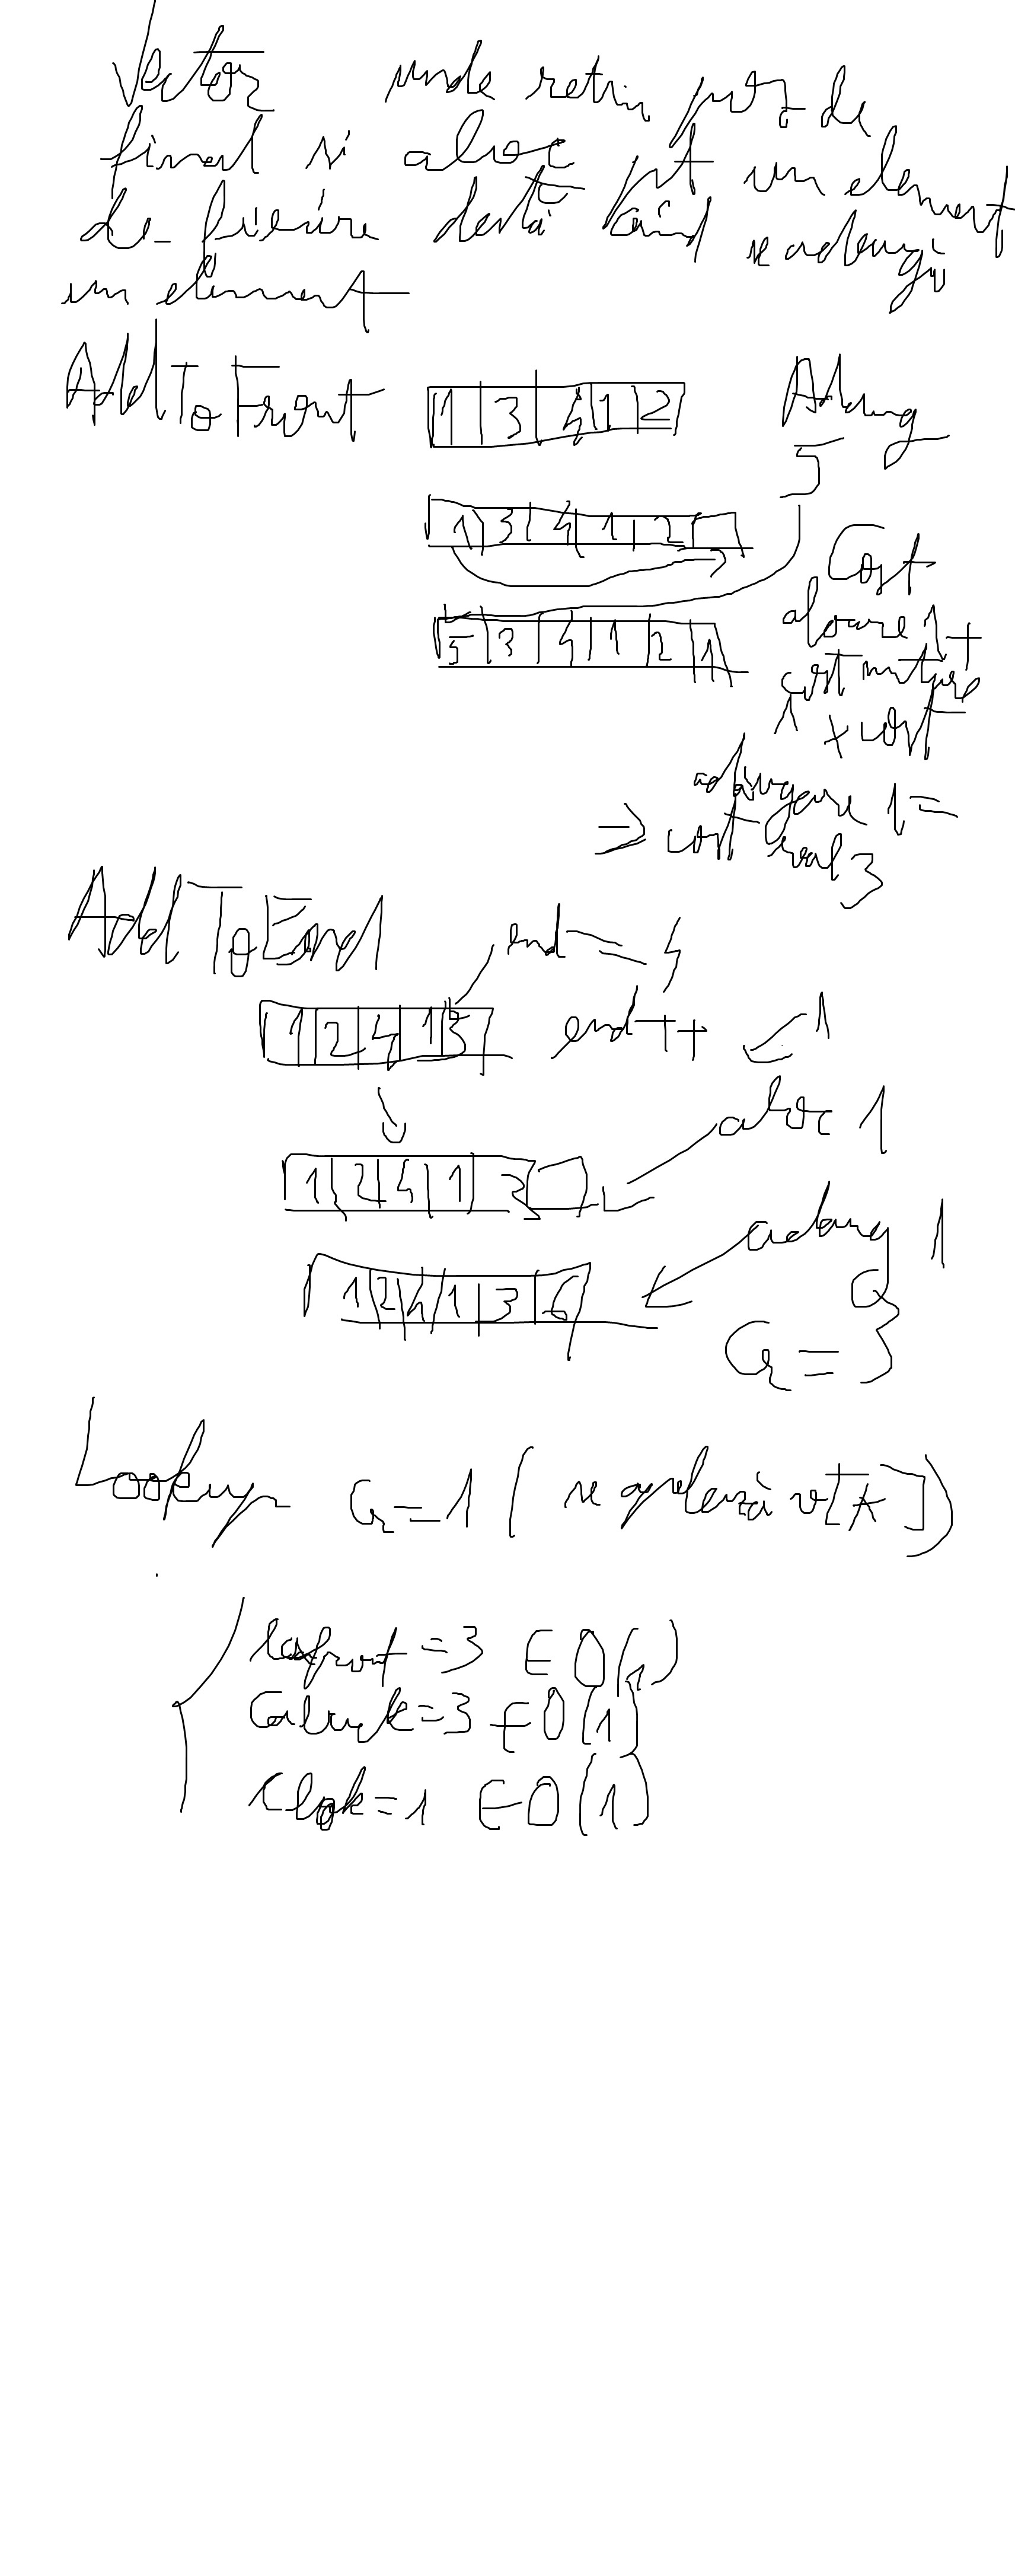 Vector unde retin poz de
final si aloc pt un element
de fiecare dată când se adaugă
un element
AddToFront
1 3 4 1 2
Adaug
5
1 3 4 1 2
5 3 4 1 2 1
Cost
alocare 1 +
cost mutare
1 + cost
adăugare 1 =
=> cost real 3
AddToEnd
end = 4
1 2 4 1 3
end++ 1
aloc 1
1 2 4 1 3
adaug 1
1 2 4 1 3 6
Cr = 3
Lookup Cr = 1 ( se apelează v[k] )
= 3 ∈ O(1)
= 3 ∈ O(1)
= 1 ∈ O(1)